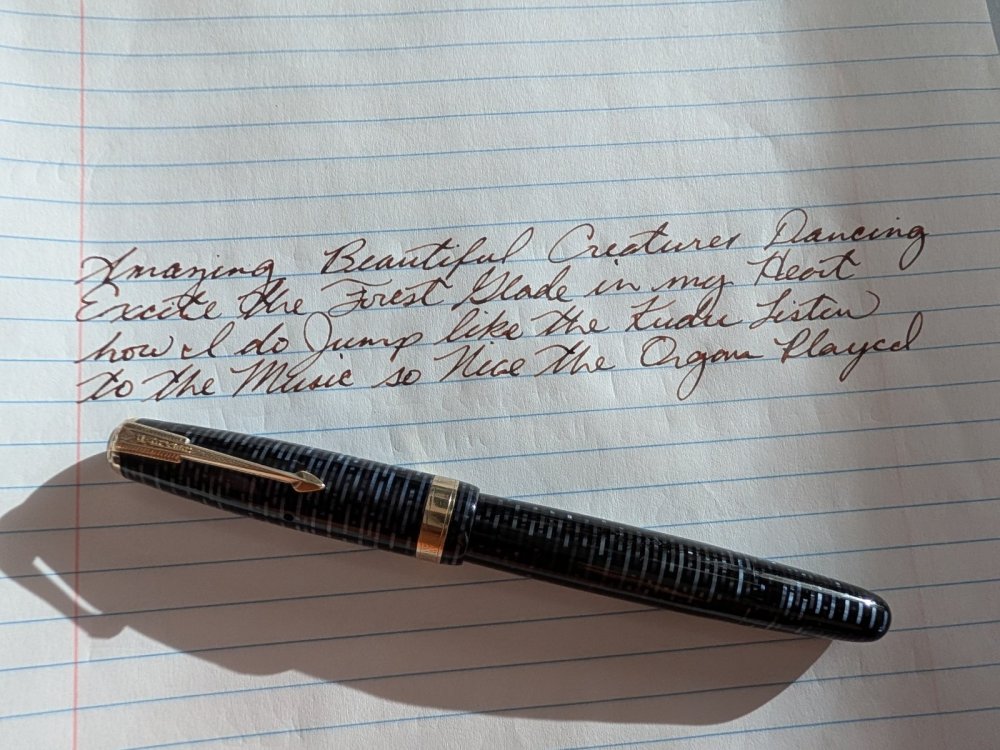 Amazing Beautiful Creatures Dancing
Excite the Forest Glade in my Heart
how I do Jump like the Kudu Listen
to the Music so Nice the Organ Played